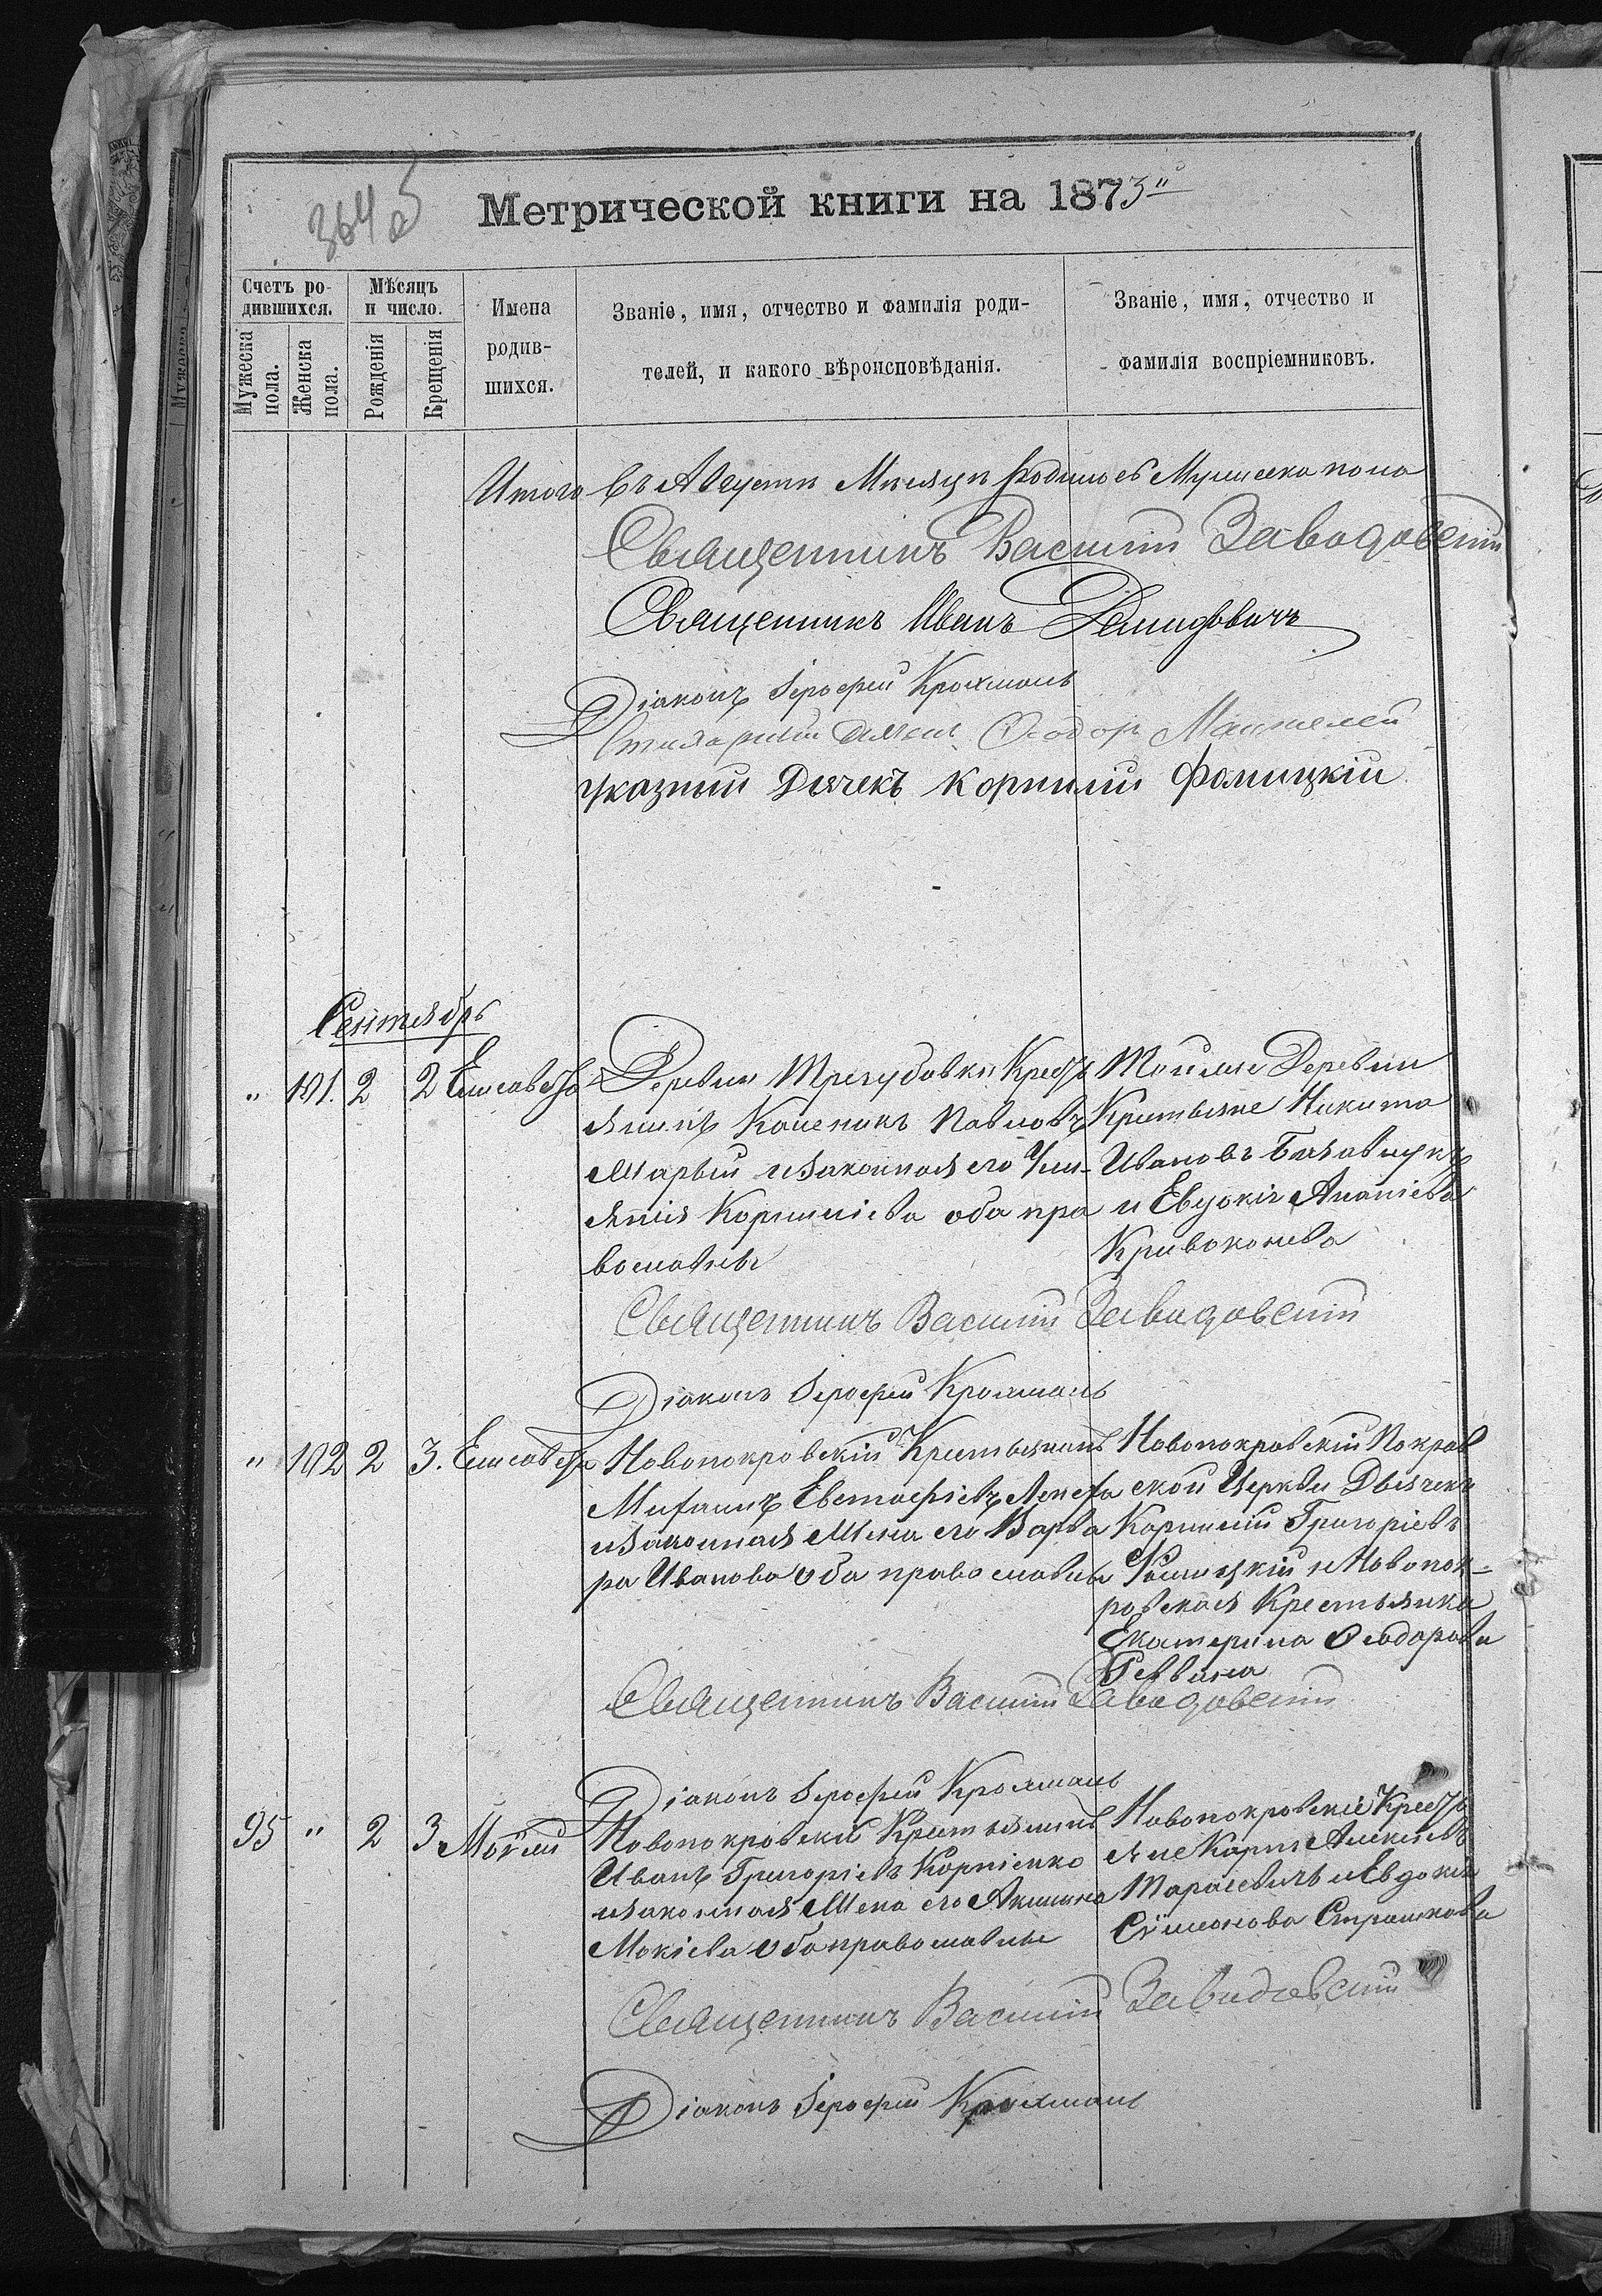 364 об
Метрической книги на 1873й
Счетъ родившихся.
Мужеска пола.
Женска пола.
Мѣсяцъ и число.
Рожденія
Крещенія
Имена родившихся.
Званіе, имя, отчество и фамилія роди-
телей, и какого вѣроисповѣданія.
Званіе, имя, отчество и
фамилія воспріемниковъ.
Итого въ Августѣ Мѣсяцѣ Родилось Мужеска пола
Священникъ Василій Заводовскій
Священникъ Иванъ Демидовичъ
Діаконъ Іерофей Крохмаль
Стихарный Дьячекъ Ѳеодоръ
указный Дьячекъ Корнилій Фомицкій
Сентябрь
" 101. 2 2 Елисавета Деревни Трегубовки Кресть
янинъ Павловъ
и законная его
Корниліева оба пра
вославные
Тойже Деревни
Крестьяне Никита
Ивановъ
и Евдокія Ананіева
Кривоконева
Священникъ Василій Заводовскій
Діаконъ Іерофей Крохмаль
" 102 2 3. Елисавета Новопокровскій Крестьянинъ
Евстафіевъ
и законная Жена его Варва
ра Иванова оба православные
Новопокровскій Покров
ской Церкви Дьячекъ
Корнилій Григоріевъ
Фомицкій и Новопок-
ровская Крестьянка
Екатерина Ѳеодорова
Священникъ Василій Заводовскій
Діаконъ Іерофей Крохмаль
95 " 2 3 Моѵсей Новопокровскій Крестьянинъ
Иванъ Григоріевъ Корніенко
и законная Жена его Акилина
Мокіева оба православные
Новопокровскіе Кресть
яне Карпъ Алексіевъ
Тарасевичъ и Евдокія
Сѵмеонова Страшкова
Священникъ Василій Заводовскій
Діаконъ Іерофей Крохмаль